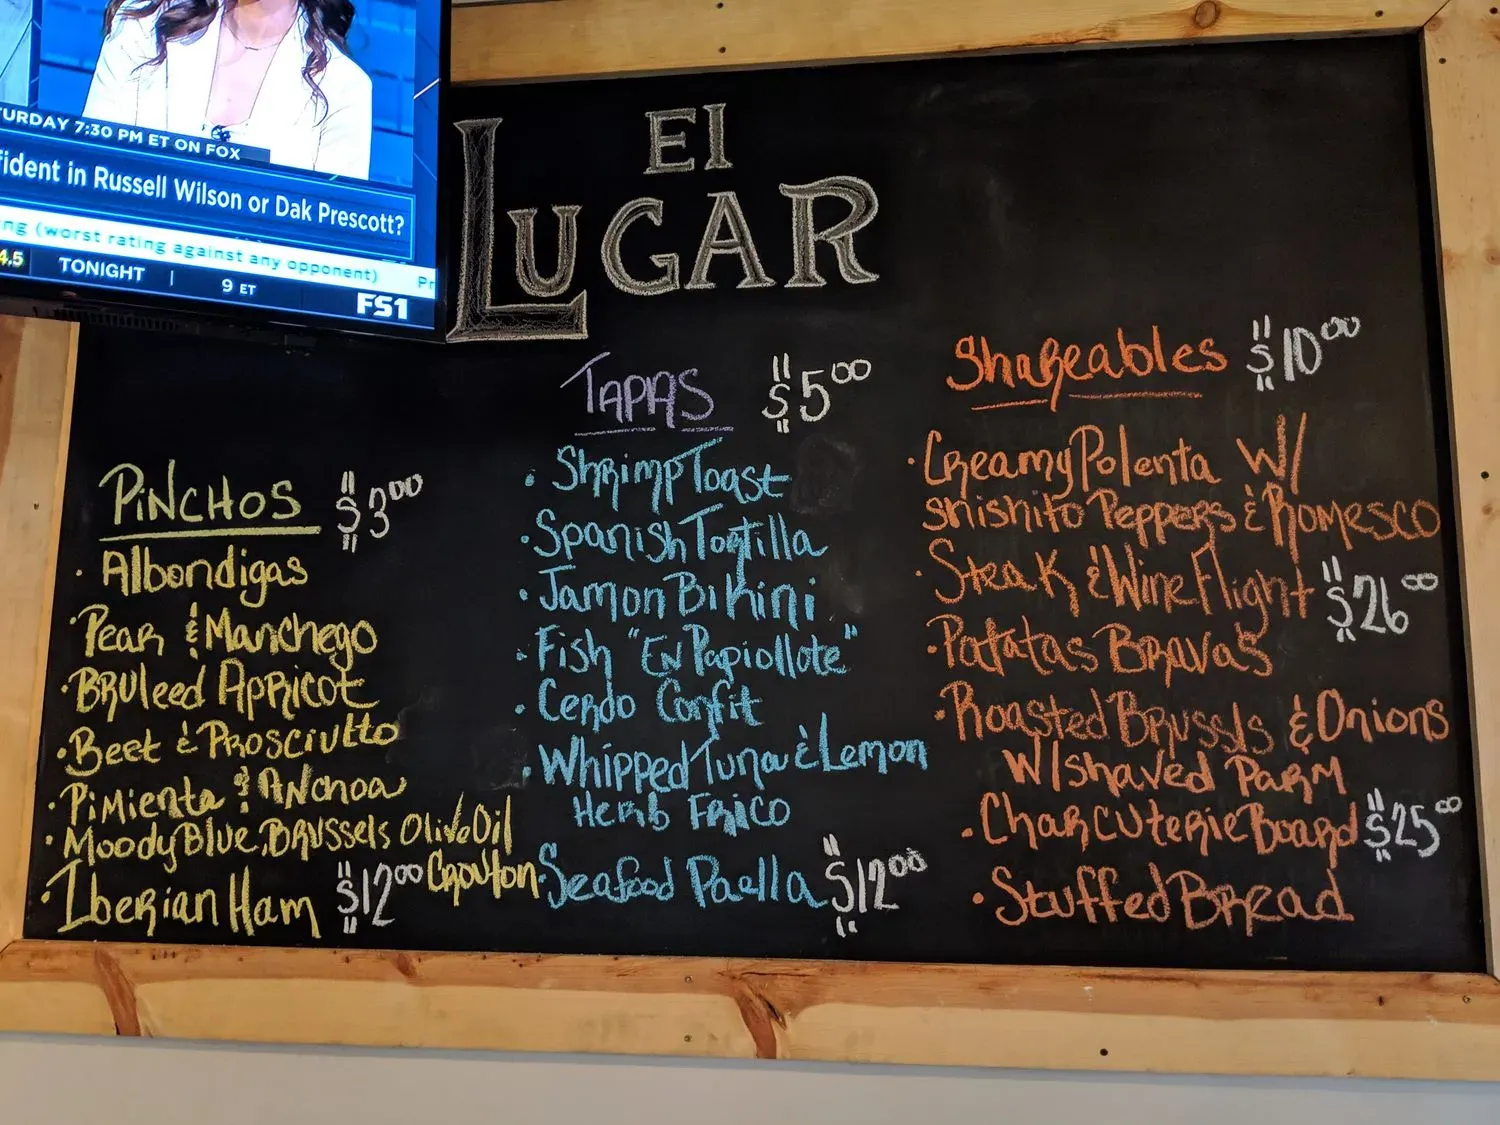 TURDAY 7:30 PM ET ON FOX
fident in Russell Wilson or Dak Prescott?
ng (worst rating against any opponent)
Pr
4.5 TONIGHT | 9 ET
FS1
El
LUGAR
PINCHOS $3.00
· Albondigas
· Pear & Manchego
· Bruleed Apricot
· Beet & Prosciutto
· Pimienta & Anchoa
· Moody Blue, Brussels Olive Oil
Crouton
· Iberian Ham $12.00
TAPAS $5.00
· Shrimp Toast
· Spanish Tortilla
· Jamon Bikini
· Fish "En Papiollote"
· Cerdo Confit
· Whipped Tuna & Lemon
Herb Frico
· Seafood Paella $12.00
Shareables $10.00
· Creamy Polenta w/
shishito Peppers & Romesco
· Steak & Wine Flight $26.00
· Patatas Bravas
· Roasted Brussls & Onions
w/shaved Parm
· Charcuterie Board $25.00
· Stuffed Bread